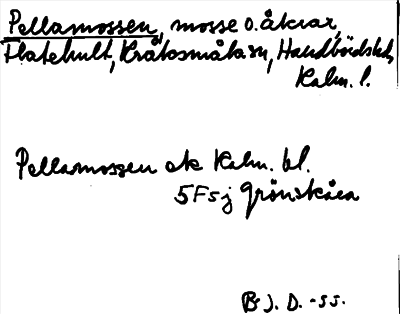 Pellamossen, mosse o. åkrar,
Flatehult, Kråksmåla sn, Handbörds hd,
Kalm. l.
Pellamossen ek Kalm. bl.
5F5j Grönskåra
BJ. D. -55.